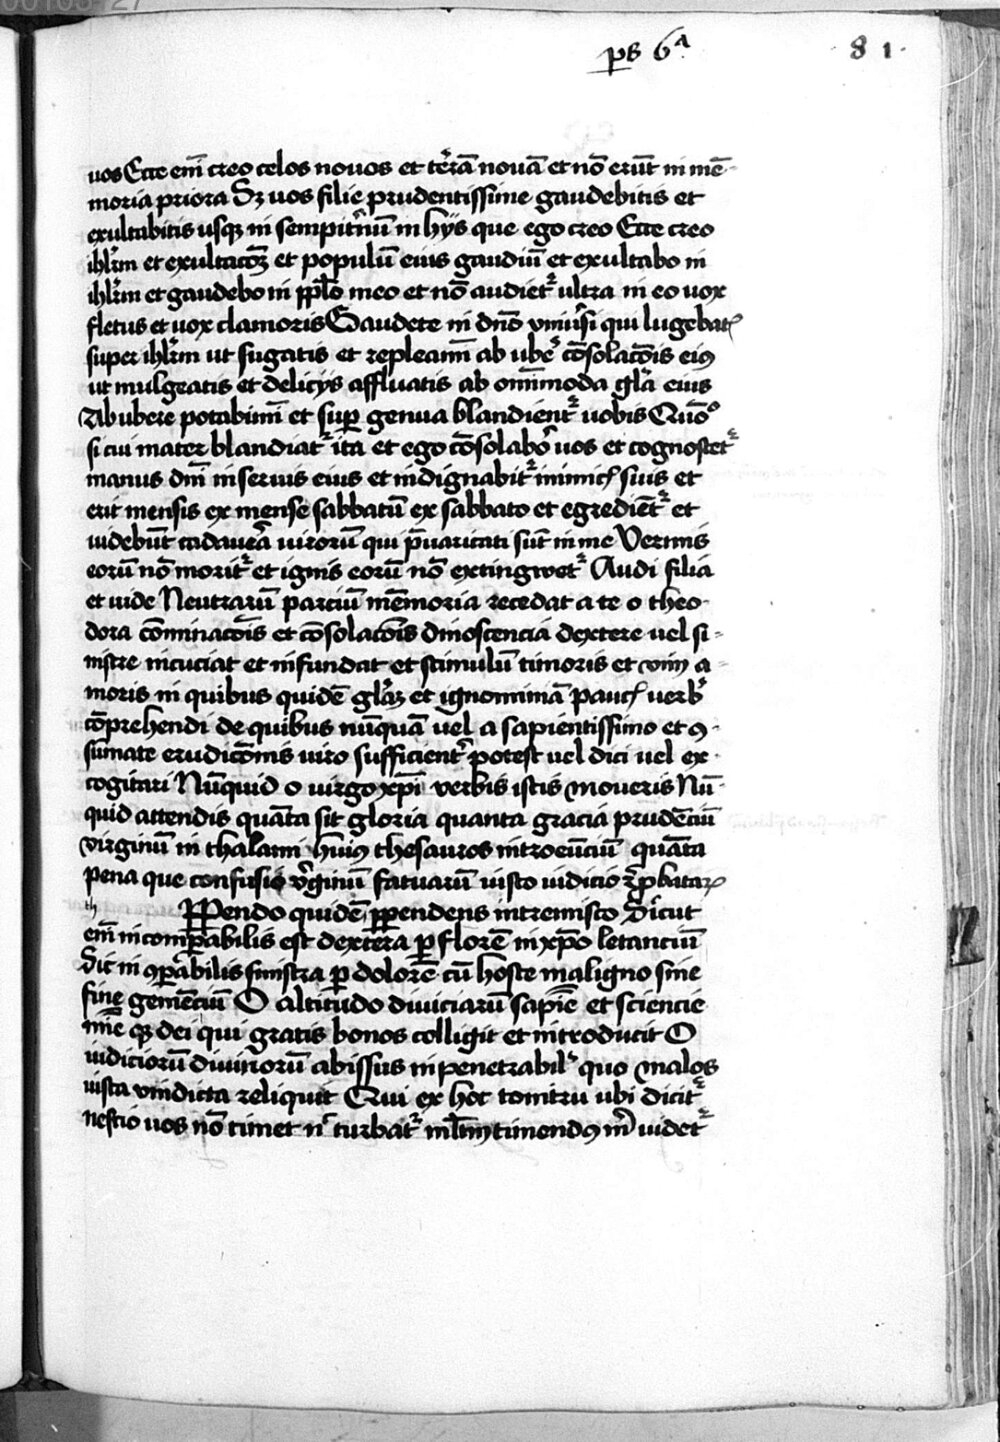 ps 6a 81.
vos Ecce em̄ creo celos novos et t̄erā novā et nō erūt in mē-
moria priora Sꝫ vos filie prudentissime gaudebitis et
exultabitis usqꝫ in sempit̄nū in hijs que ego creo Ecce creo
ihlr̄m et exultacōꝫ et populū eius gaudiū et exultabo in
ihlr̄m et gaudebo in ppl̄o meo et nō audiet᷑ ultra in eo vox
fletus et vox clamoris Gaudete in dn̄o univ̄si qui lugebatꝭ
super ihlr̄m ut sugatis et repleamī ab ube᷑ cōsolacōis eiꝰ
ut mulgeatis et delicijs affluatis ab om̄imoda gl̄a eius
Ab ubere potabimī et suꝑ genua blandient᷑ vobis Quōo
si cui mater blandiat᷑ ita et ego cōsolabo᷑ vos et cognoscet᷑
manus dn̄i in servis eius et indignabit᷑ inimicꝭ suis et
erit mensis ex mense sabbatū ex sabbato et egrediēt᷑ et
videbūt cadav̄a virorū qui p̄varicati sūt in me Vermis
eorū nō morit᷑ et ignis eorū nō extingwet᷑ Audi filia
et vide Neutrarū parciū mēmoria recedat a te o theo-
dora cōminacōis et cōsolacōis dinoscencia dextere vel si-
nistre incuciat et infundat et stimulū timoris et vim a-
moris in quibus quidē gl̄aꝫ et ignominiā paucꝭ verb᷑
cōprehendi de quibus nūquā vel a sapientissimo et ꝯ-
sumate erudicōnis viro sufficient᷑ potest vel dici vel ex-
cogitari Nūquid o virgo xp̄i verbis istis moveris Nū-
quid attendis quāta sit gloria quanta gracia prudēciū
virginū in thalami huiꝰ thesauros introeūciū quāta
pena que confusio v̄ginū fatuarū iusto iudicio r̄ꝓbatarꝝ
th PPendo quidē ꝑpendens intremisco Sicut
em̄ incomp̄abilis est dext̄era ꝑ florē in xp̄o letanciū
Sic inꝯp̄abilis sinistra ꝑ dolorē cū hoste maligno sine
fine gemēciū O altitudo diviciarū sapīe et sciencie
mīe qꝫ dei qui gratis bonos colligit et introducit O
iudiciorū divinorū abissus inpenetrabil᷑ quo malos
iusta vindicta reliquit Qui ex hoc tonitru ubi dicit᷑
nescio vos nō timet n᷑ turbat᷑ ml̄tm timendꝰ m᷑ videt᷑